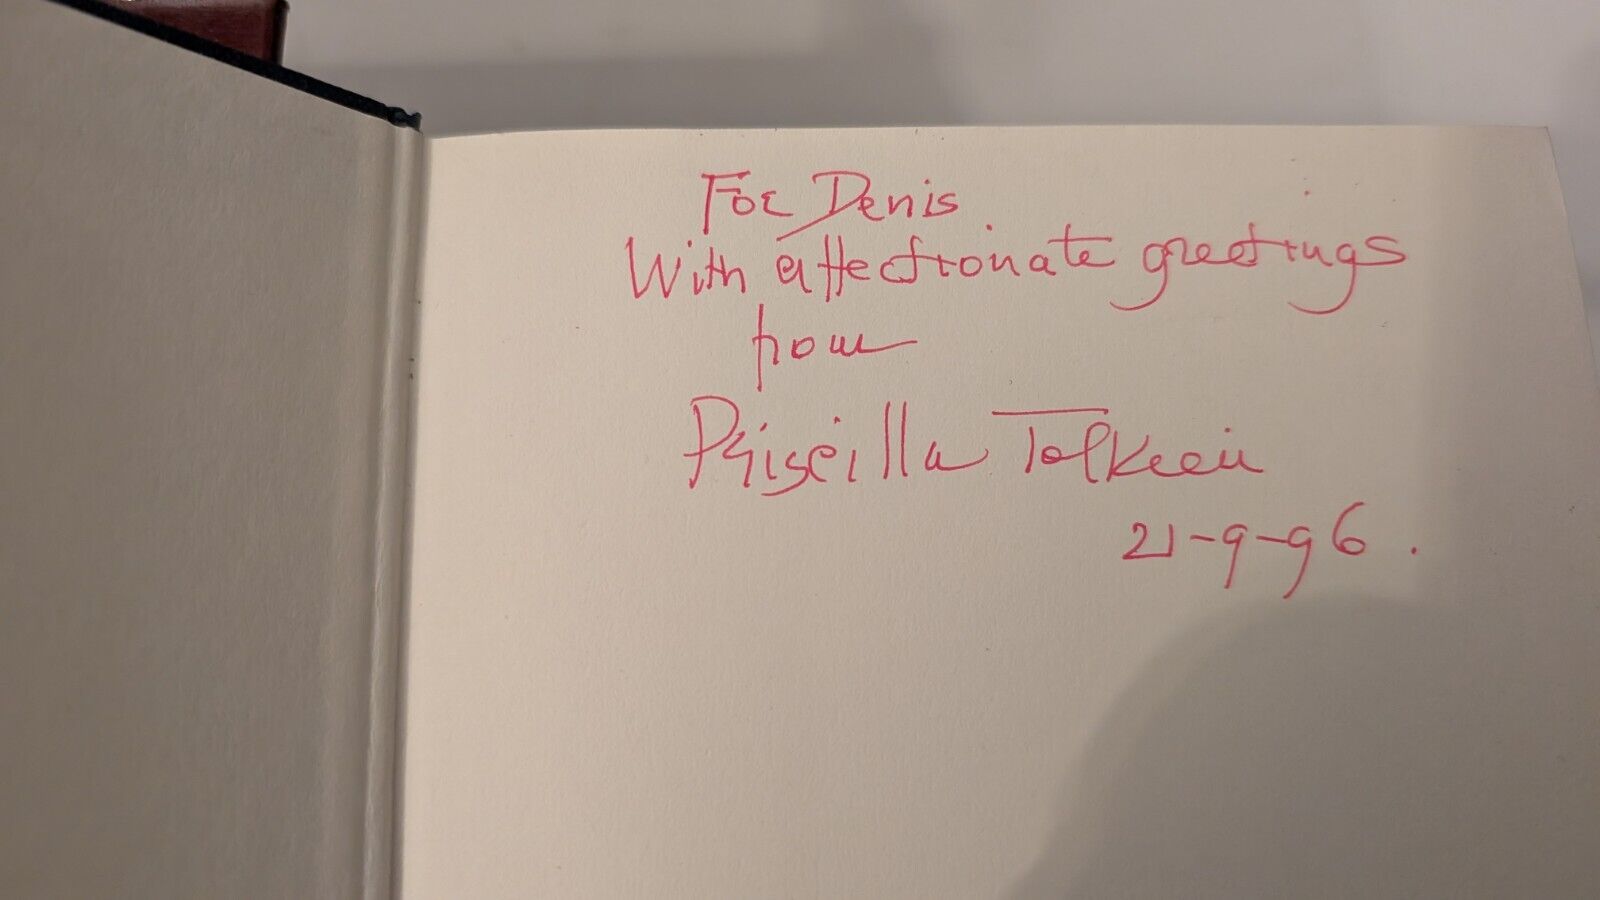 For Denis
With affectionate greetings
from
Priscilla Tolkien
21-9-96.